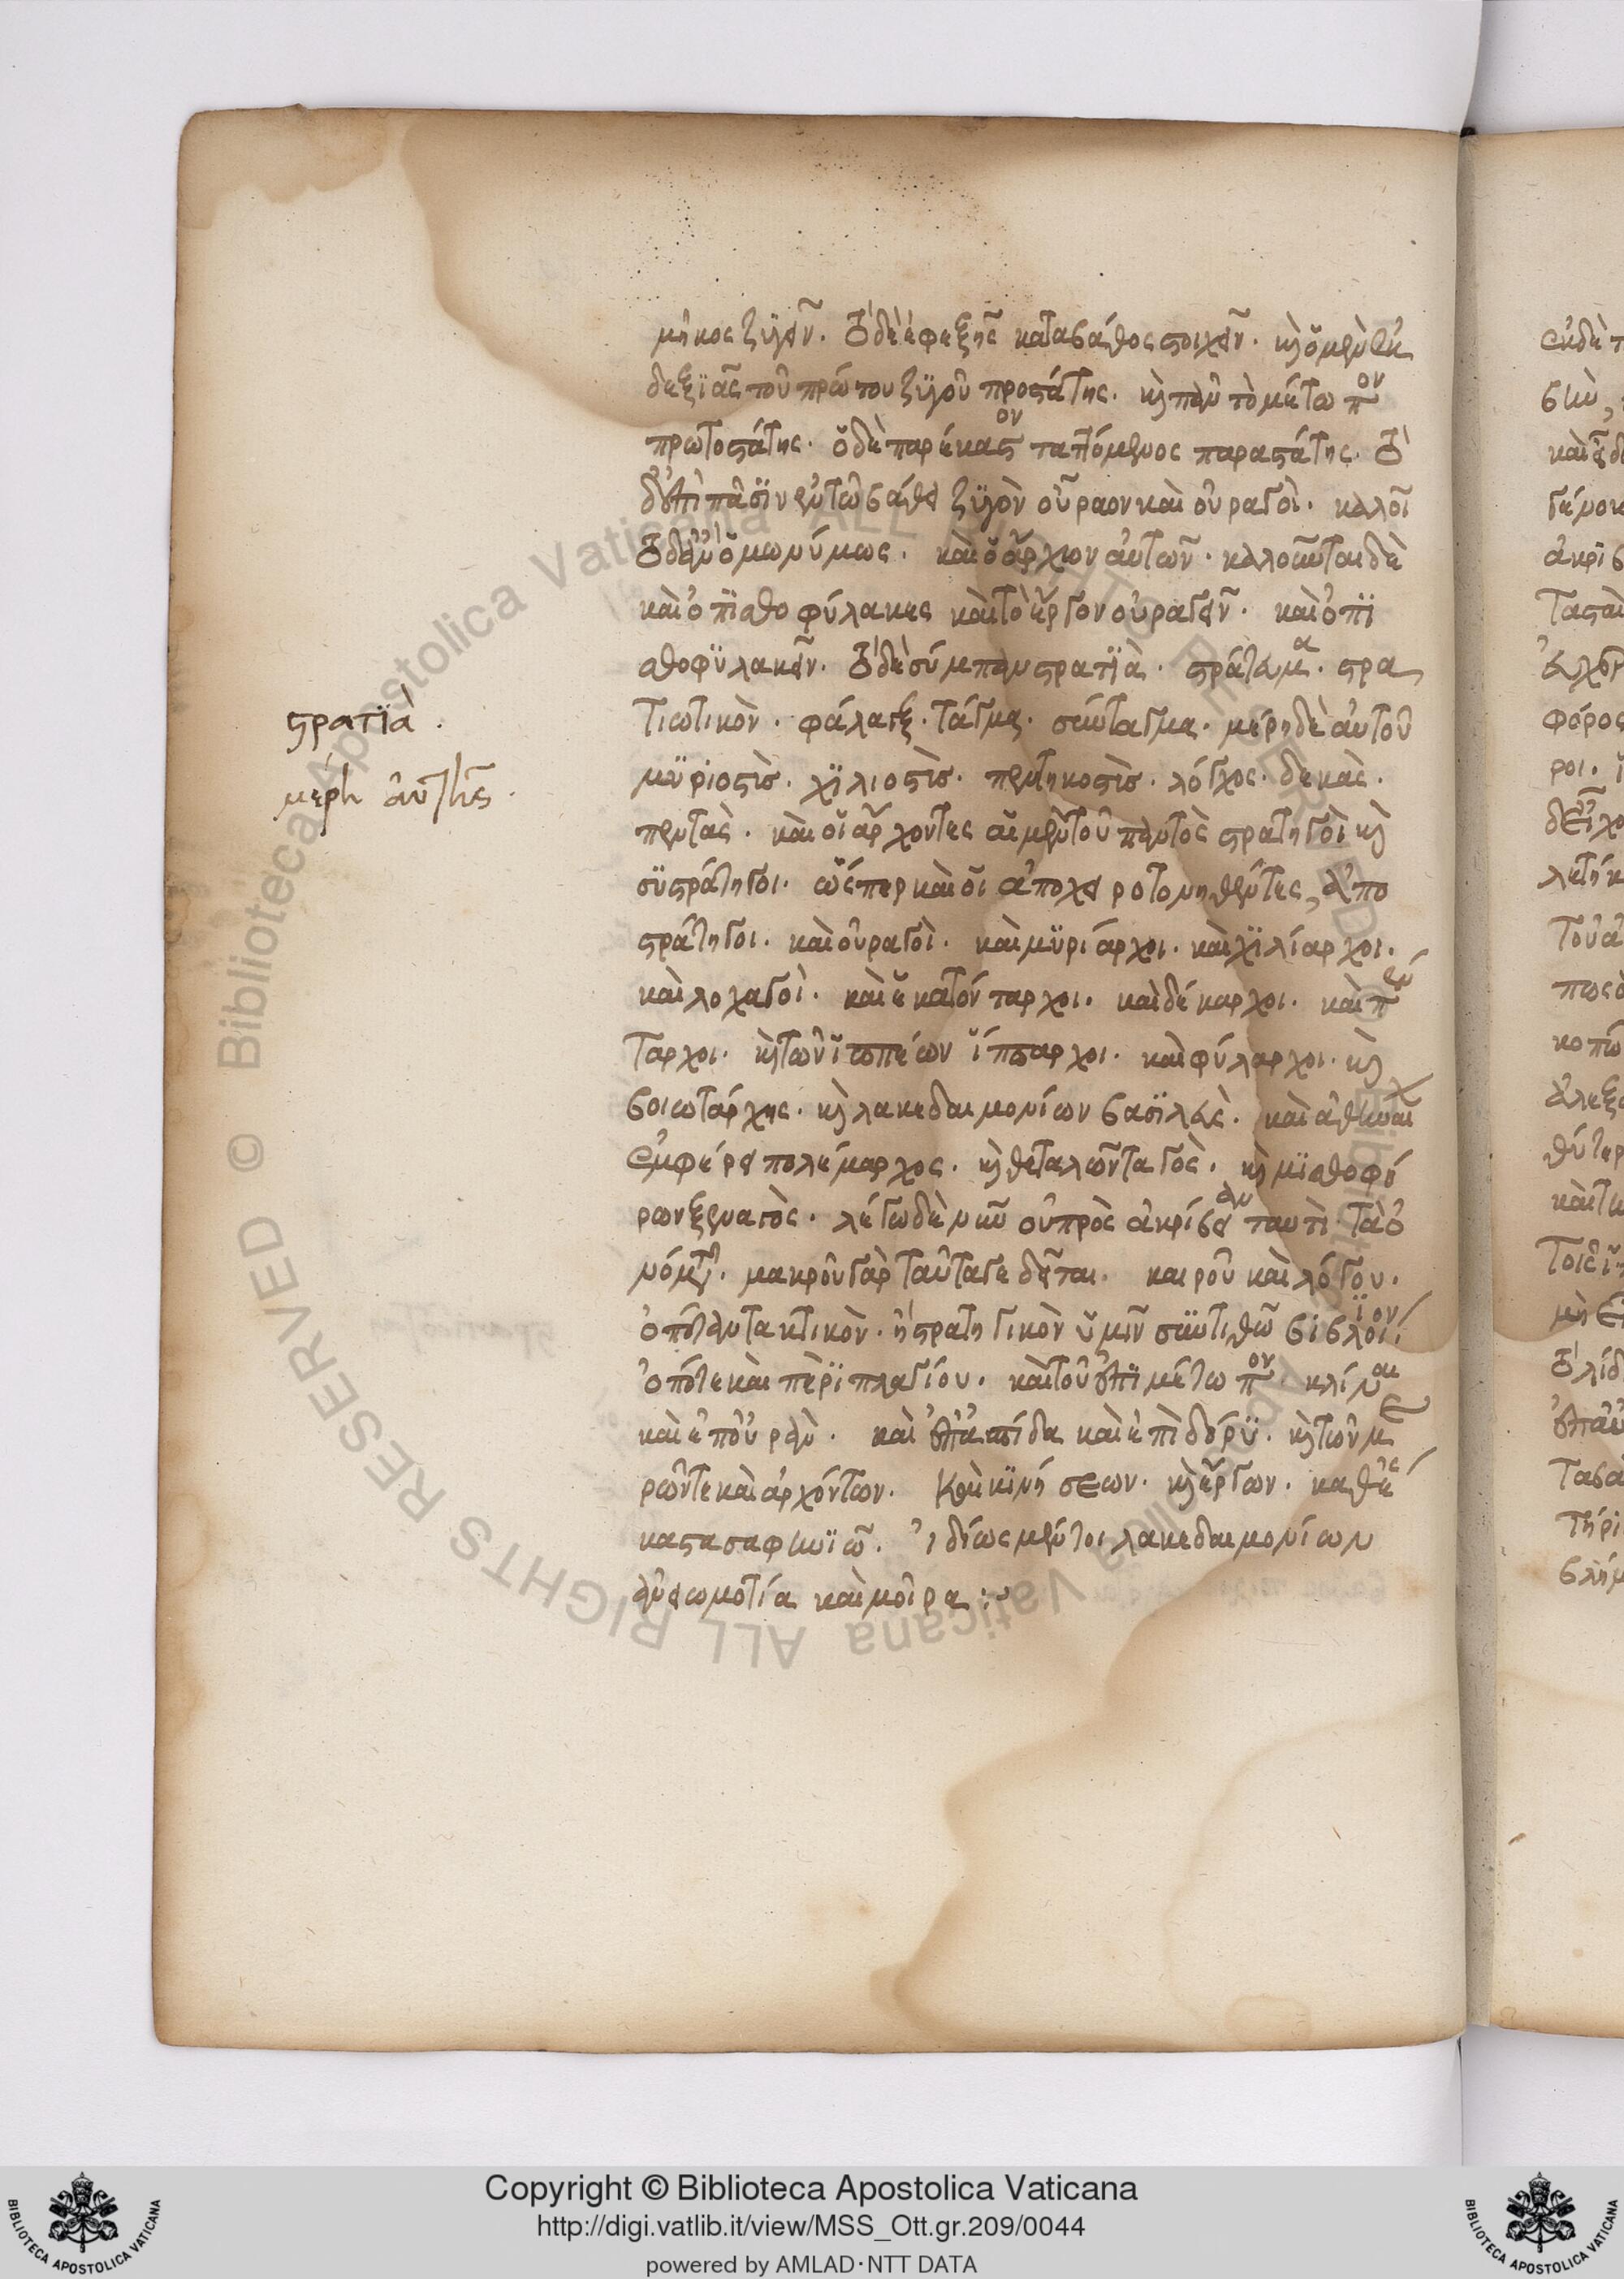 μῆκος ζυγεῖν. τὸ δὲ ἐφεξῆς κατὰ βάθος στοιχεῖν. καὶ ὁ μὲν ἐκ
δεξιᾶς τοῦ πρώτου ζυγοῦ προστάτης. καὶ πᾶν τὸ μέτωπον
πρωτοστάτης. ὁ δὲ παρ' ἕκαστον ταττόμενος παραστάτης. τὸ
δ' ἐπὶ πᾶσιν ἐν τῷ βάθει ζυγὸν οὐραῖον καὶ οὐραγοί. καλοῖ
ὁμωνύμως. καὶ ὁ ἄρχων αὐτῶν. καλοῦνται δὲ
καὶ ὀπισθοφύλακες καὶ τὸ ἔργον οὐραγεῖν. καὶ ὀπι
σθοφυλακεῖν. τὸ δὲ σύμπαν στρατιὰ. στράτευμα. στρα
τιωτικὸν. φάλαγξ. τάγμα. σύνταγμα. μέρη δὲ αὐτοῦ
μυριοστὺς. χιλιοστὺς. πεντηκοστὺς. λόχος. δεκὰς.
πεντὰς. καὶ οἱ ἄρχοντες αὖ μὲν τοῦ παντὸς στρατηγοὶ καὶ
συστράτηγοι. ὥσπερ καὶ οἱ ἀποχειροτονηθέντες, ἀπο
στράτηγοι. καὶ οὐραγοὶ. καὶ μυριάρχοι. καὶ χιλίαρχοι.
καὶ λοχαγοὶ. καὶ ἑκατόνταρχοι. καὶ δέκαρχοι. καὶ πέν
ταρχοι. καὶ τῶν ἱππέων ἵππαρχοι. καὶ φύλαρχοι. καὶ
βοιωτάρχης. καὶ λακεδαιμονίων βασιλεὺς. καὶ ἀθηναί
πολέμαρχος. καὶ θεταλῶν ταγὸς. καὶ μισθοφό
ρων ξεναγὸς. λέγω δὲ νῦν οὐ πρὸς ἀκρίβειαν ταυτὶ τὰ ὀ
νόματα. μακροῦ γὰρ ταῦτά γε δεῖται. καιροῦ καὶ λόγου.
ὁπόταν τακτικὸν. ἢ στρατηγικὸν ὑμῖν συντιθῶ βιβλίον
ὁπότε καὶ περὶ πλαγίου. καὶ τοῦ ἐπὶ μέτωπον. κλῖναι
καὶ ἐπ' οὐρὰν. καὶ ἐπ' ἀσπίδα καὶ ἐπὶ δόρυ. καὶ τῶν με
ρῶν τε καὶ ἀρχόντων. καὶ κινήσεων. καὶ ἔργων. καθ' ἕ
καστα σαφηνιῶ. ἰδίως μέντοι λακεδαιμονίων
ἐνωμοτία καὶ μοῖρα :
στρατιὰ.
μέρη αὐτῆς.
Copyright © Biblioteca Apostolica Vaticana
http://digi.vatlib.it/view/MSS_Ott.gr.209/0044
powered by AMLAD·NTT DATA
BIBLIOTECA APOSTOLICA VATICANA
BIBLIOTECA APOSTOLICA VATICANA
© Biblioteca Apostolica Vaticana ALL RIGHTS RESERVED © Biblioteca Apostolica Vaticana ALL RIGHTS RESERVED